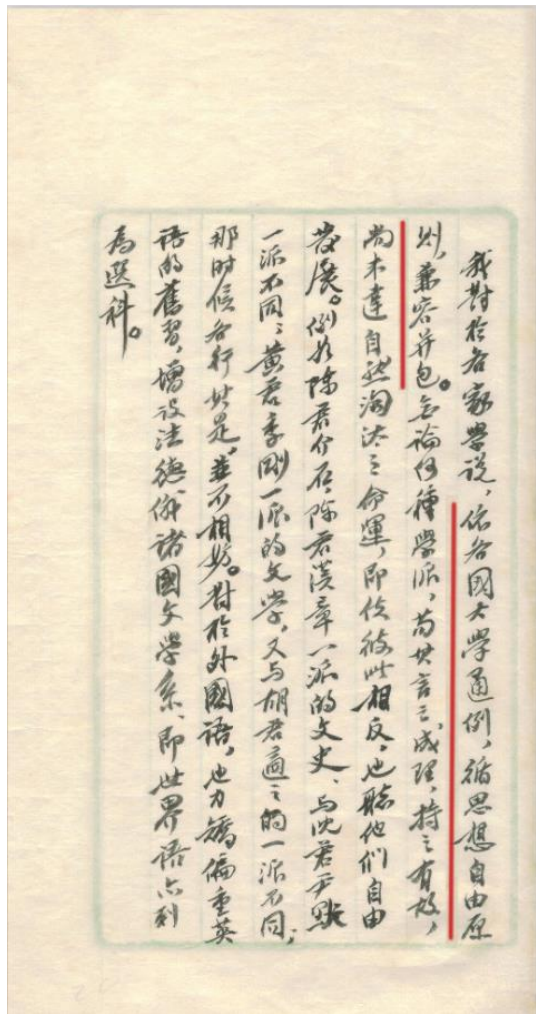 我對於各家學說，依各國大學通例，循思想自由原
则，兼容并包。無論何種學派，苟其言之成理，持之有故，
尚未達自然淘汰之命運，即使彼此相反，也聽他們自由
發展。例如陳君介石、陳君漢章一派的文史，与沈君尹默
一派不同；黄君季刚一派的文學，又与胡君適之的一派不同；
那时候各行其是，並不相妨。對於外國語，也力矯偏重英
語的舊習，增设法德俄諸國文學系，即世界语亦列
為選科。